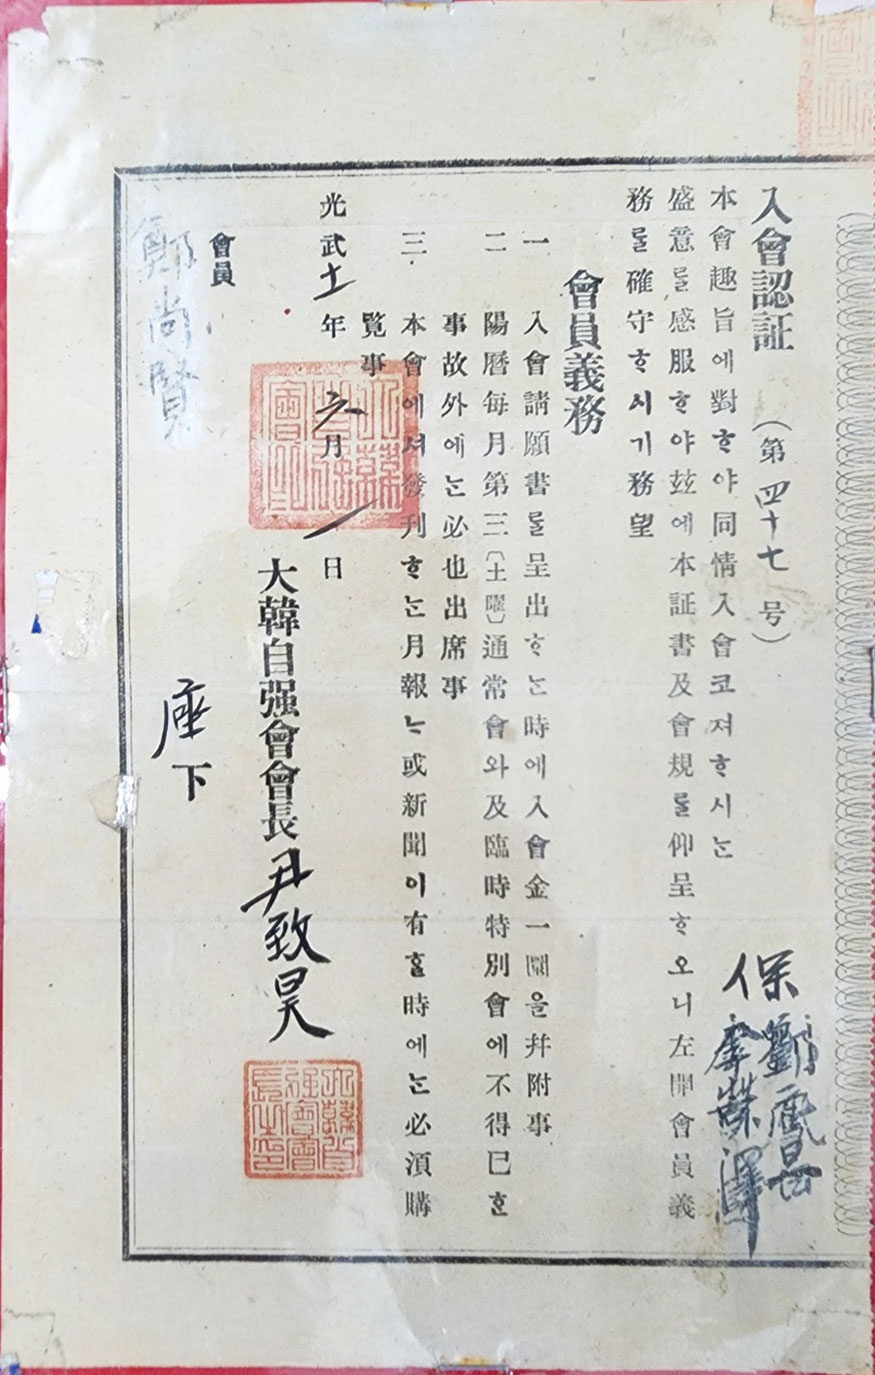 入會認証 (第四十七号)
本會趣旨에對ᄒᆞ야同情入會코져ᄒᆞ시ᄂᆞᆫ
盛意ᄅᆞᆯ感服ᄒᆞ야玆에本証書及會規ᄅᆞᆯ仰呈ᄒᆞ오니左開會員義
務ᄅᆞᆯ確守ᄒᆞ시기務望
保
會員義務
一 入會請願書ᄅᆞᆯ呈出ᄒᆞᄂᆞᆫ時에入會金一圜을幷附事
二 陽曆每月第三(土曜)通常會와及臨時特別會에不得已ᄒᆞᆫ
事故外에ᄂᆞᆫ必也出席事
三 本會에셔發刊ᄒᆞᄂᆞᆫ月報ᄂᆞᆫ或新聞이有ᄒᆞᆯ時에ᄂᆞᆫ必須購
覽事
光武十一年六月一日
大韓自强會會長尹致昊
大韓自强會會長之印
會員
鄭尚賢
座下